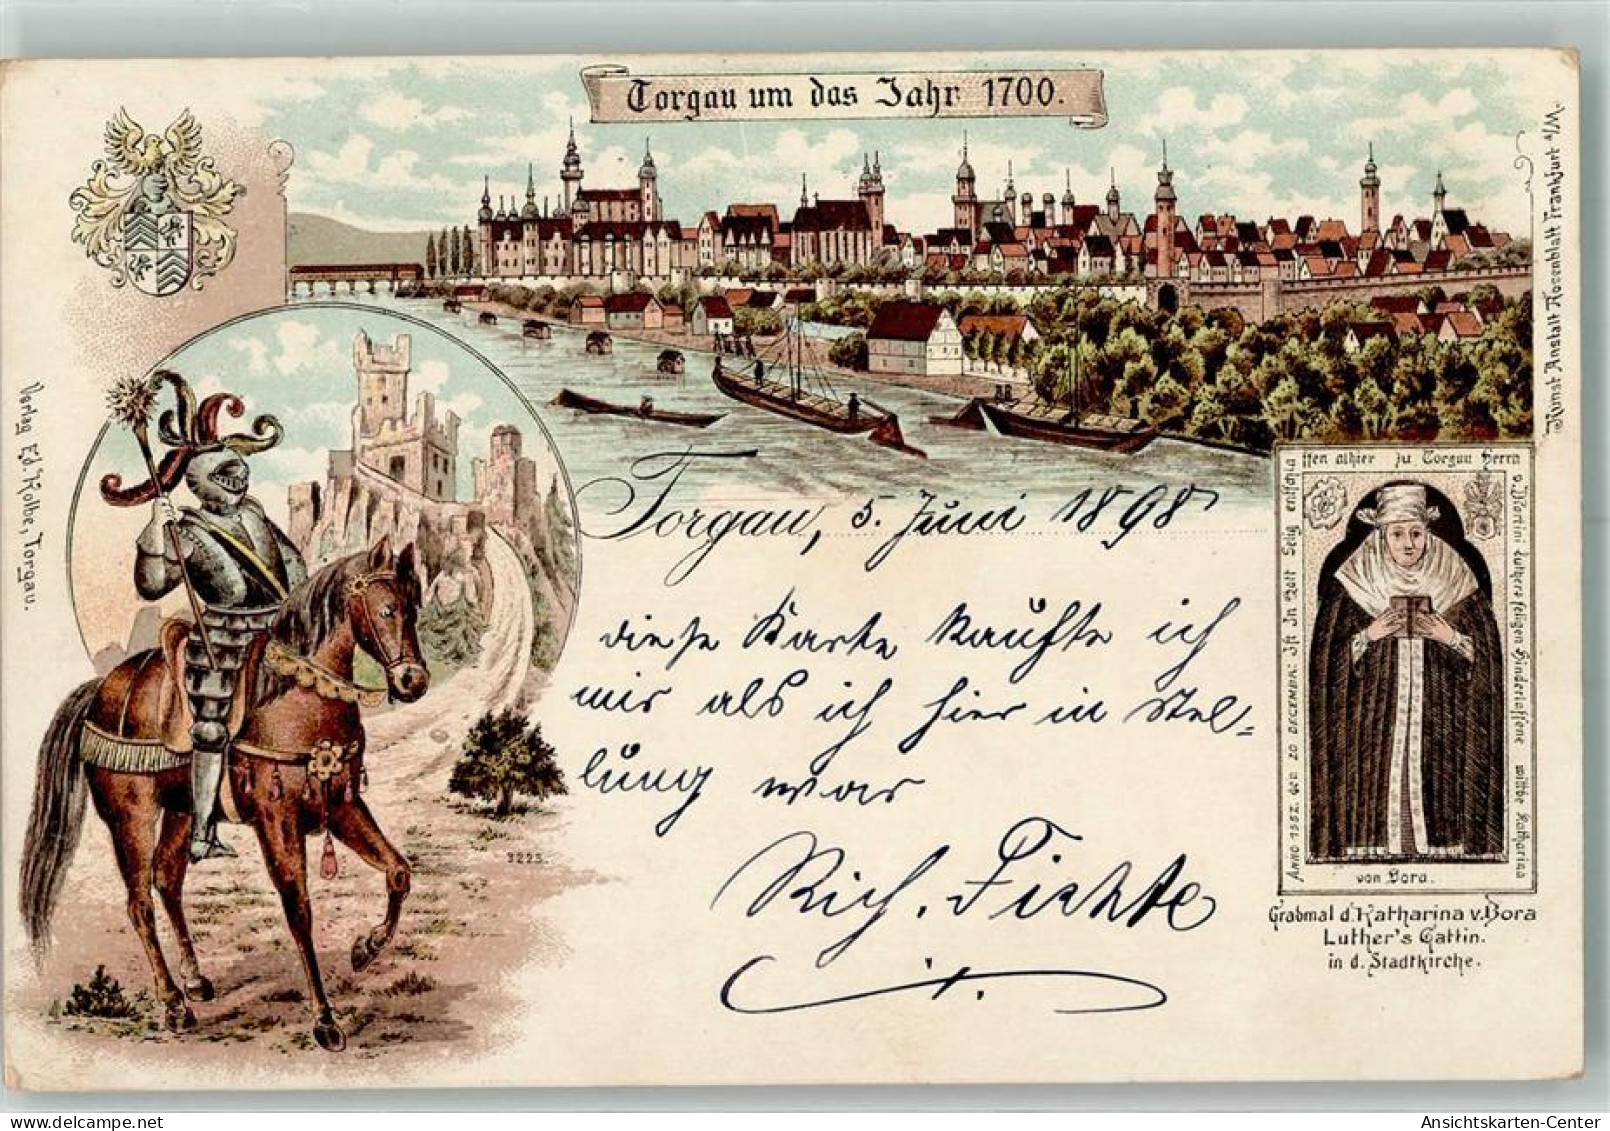 Torgau um das Jahr 1700.
Kunst Anstalt Rosenblatt Frankfurt a/M.
Verlag Ed. Kolbe, Torgau.
3225.
Torgau, 5. Juni 1898
diese Karte kaufte ich
mir als ich hier in Stel-
lung war
Rich. Fichte
ANNO 1552. den 20 DECEMBR: Ist In Gott Selig entschla
ffen alhier zu Torgau Herrn
D. Martini Luthers seligen Hinderlassene wittbe Katharina
von Bora.
Grabmal d. Katharina v. Bora
Luther's Gattin.
in d. Stadtkirche.
Ansichtskarten-Center